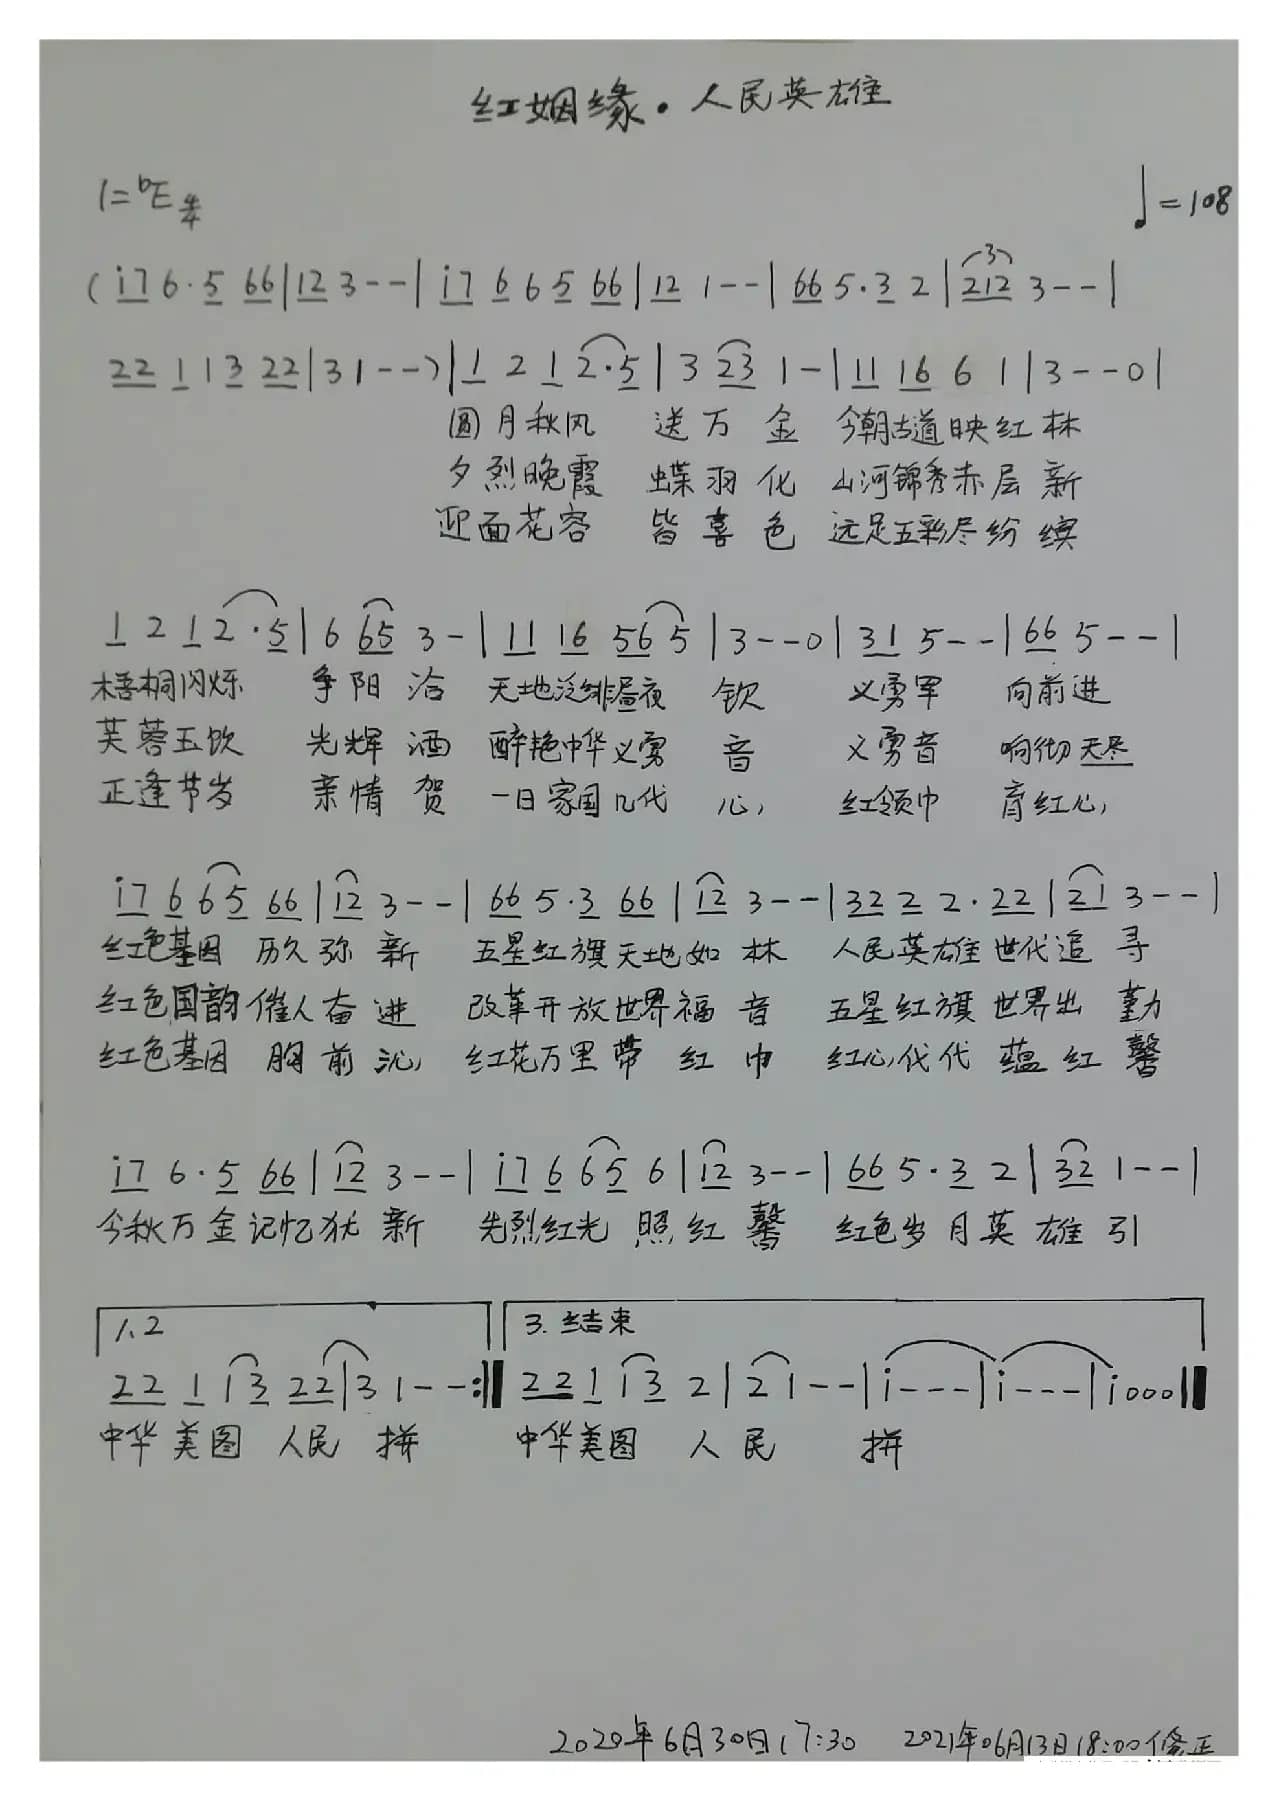 红姻缘·人民英雄
1=♭E 4/4 ♩=108
(i7 6·5 66|12 3--|i7 6 6 5 66|12 1--|66 5·3 2|212 3--|
22 1 1 3 22|31--)|1 2 1 2·5|3 23 1-|11 16 6 1|3--0|
圆月秋风 送万金 今朝古道映红林
夕烈晚霞 蝶羽化 山河锦秀赤层新
迎面花容 皆喜色 远足五彩尽纷缤
1 2 1 2·5|6 65 3-|11 16 56 5|3--0|31 5--|66 5--|
梧桐闪烁 争阳洽 天地泛绯昼夜 钦 义勇军 向前进
芙蓉玉饮 光辉洒 醉艳中华义勇 音 义勇音 响彻天尽
正逢节岁 亲情贺 一日家国几代 心, 红领巾 育红心,
i7 6 65 66|12 3--|66 5·3 66|12 3--|32 2 2·22|21 3--|
红色基因 历久弥新 五星红旗天地如林 人民英雄世代追寻
红色国韵催人奋进 改革开放世界福音 五星红旗世界出勤
红色基因 胸前沁, 红花万里带红巾 红心,代代蕴红馨
i7 6·5 66|12 3--|i7 6 65 6|12 3--|66 5·3 2|32 1--|
今秋万金记忆犹新 先烈红光照红馨 红色岁月英雄引
1、2 3.结束
22 1 13 22|3 1--:‖ 22 1 13 2|2 1--|i---|i---|i000‖
中华美图 人民 拼 中华美图 人民 拼
2020年6月30日17:30 2021年06月13日18:00修正